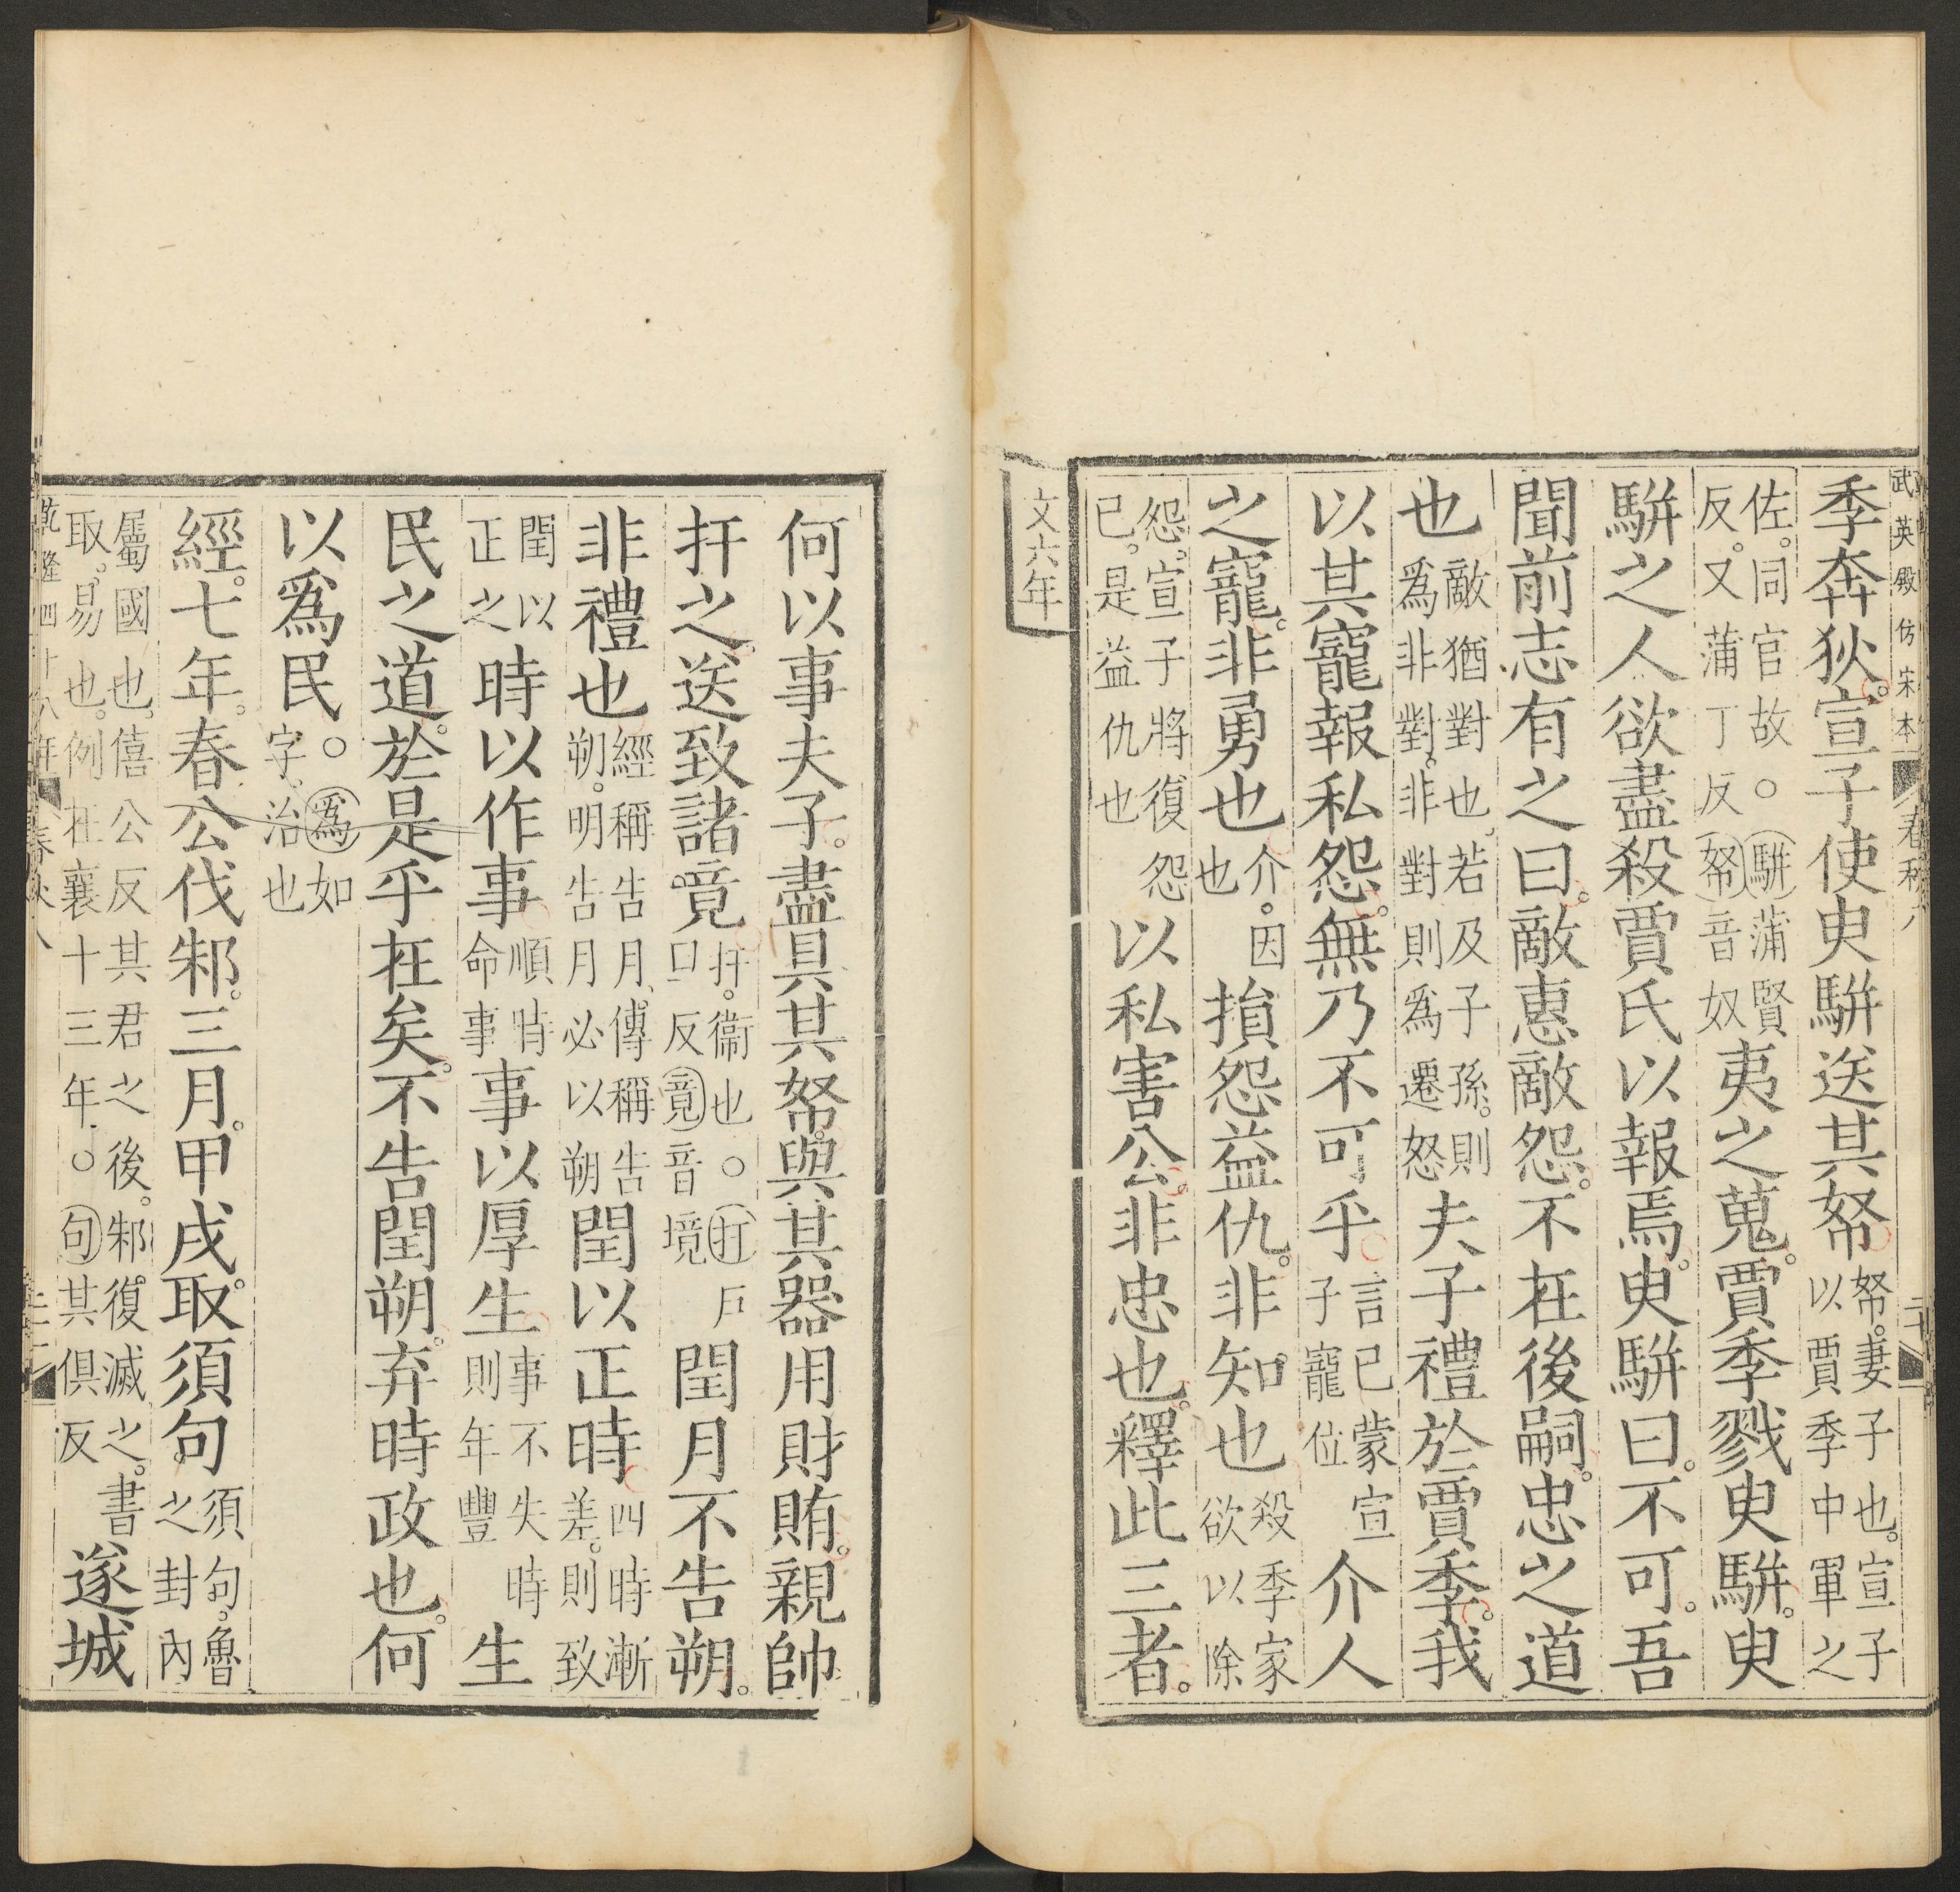 武英殿仿宋本 春秋八 二十
季奔狄。宣子使臾駢送其帑帑。妻子也。宣子以賈季中軍之
佐。同官故。○駢蒲賢反。又蒲丁反帑音奴夷之蒐。賈季戮臾駢。臾
駢之人欲盡殺賈氏以報焉。臾駢曰。不可。吾
聞前志有之曰。敵惠敵怨。不在後嗣。忠之道
也敵猶對也。若及子孫。則爲非對。非對則爲遷怒夫子禮於賈季。我
以其寵報私怨。無乃不可乎言已蒙宣子寵位介人
之寵。非勇也介。因也損怨益仇。非知也殺季家欲以除
怨。宣子將復怨已。是益仇也以私害公。非忠也。釋此三者。
文六年
何以事夫子。盡具其帑。與其器用財賄。親帥
扞之。送致諸竟。扞。衞也。○扞戶口反竟音境閏月不告朔。
非禮也經稱告月。傳稱告朔。明告月必以朔閏以正時四時漸差。則致
閏以正之時以作事順時命事事以厚生事不失時則年豐生
民之道。於是乎在矣。不告閏朔。弃時政也。何
以爲民。○爲如字。治也
經。七年。春。公伐邾。三月。甲戌。取須句。須句。魯之封內
屬國也。僖公反其君之後。邾復滅之。書取。易也。例在襄十三年。○句其俱反遂城
乾隆四十八年 春秋八